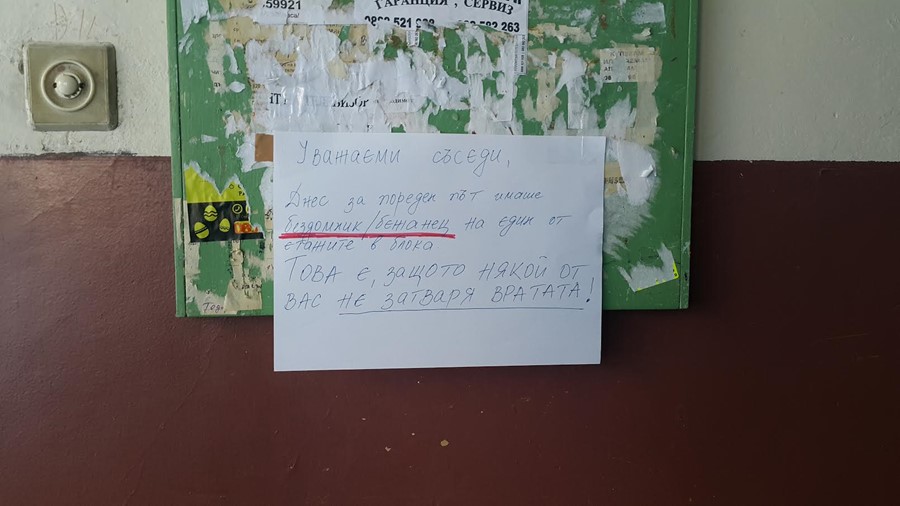 59921
ГАРАНЦИЯ, СЕРВИЗ
Уважаеми съседи,
Днес за пореден път имаше
бездомник/бежанец на един от
етажите в блока
ТОВА Е, ЗАЩОТО НЯКОЙ ОТ
ВАС НЕ ЗАТВАРЯ ВРАТАТА!